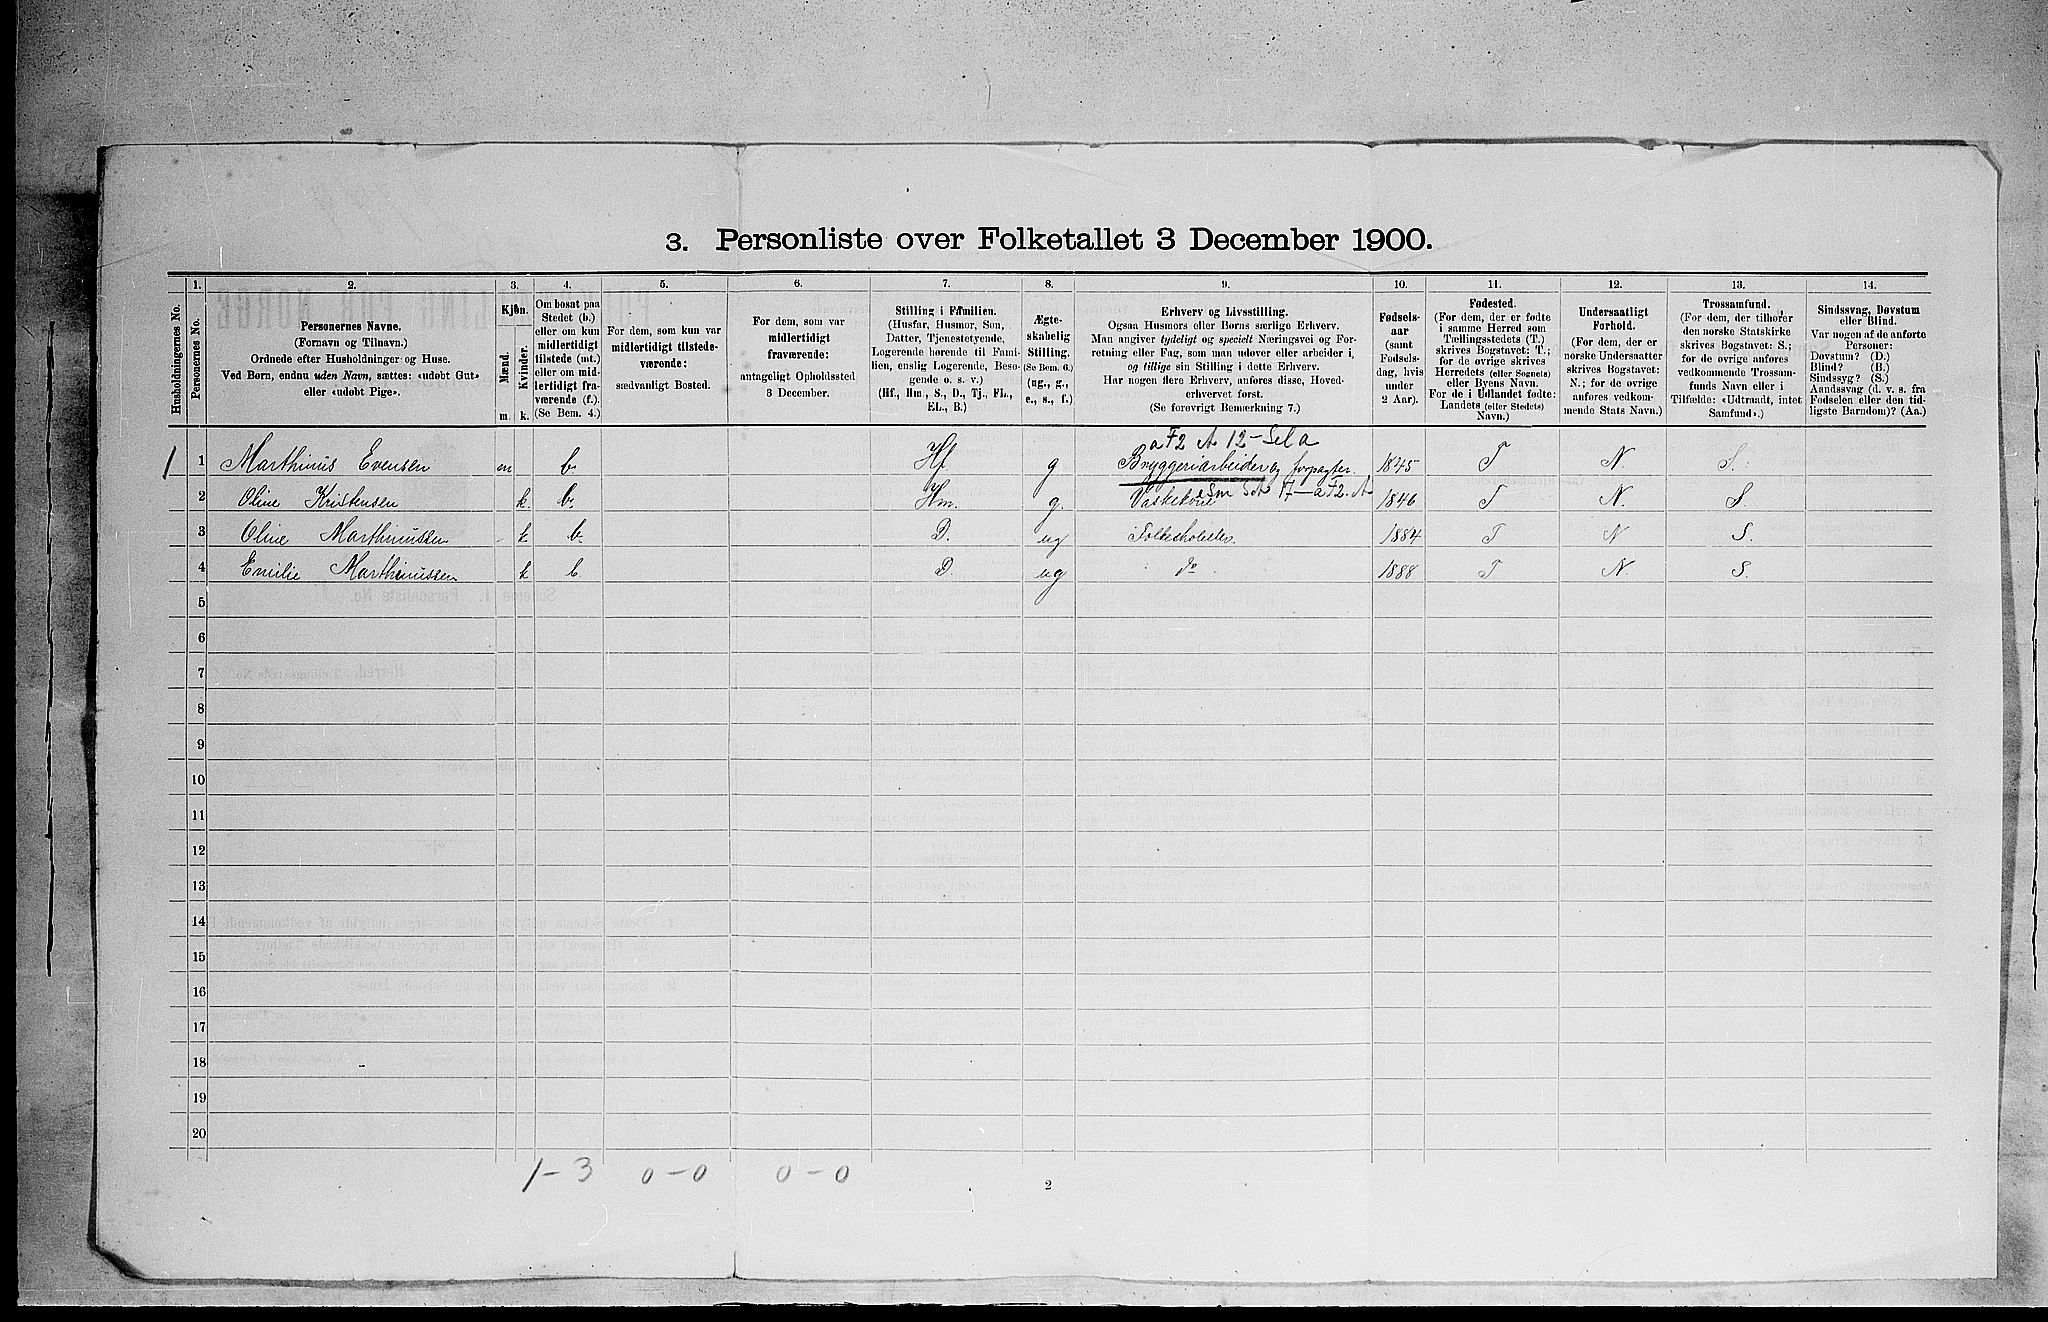 3. Personliste over Folketallet 3 December 1900.
Husholdningernes No.
1.
Personernes No.
2.
Personernes Navne.
(Fornavn og Tilnavn.)
Ordnede efter Husholdninger og Huse.
Ved Børn, endnu uden Navn, sættes: «udøbt Gut»
eller «udøbt Pige».
3.
Kjøn.
Mænd.
m.
Kvinder.
k.
4.
Om bosat paa
Stedet (b.)
eller om kun
midlertidigt
tilstede (mt.)
eller om mid-
lertidigt fra-
værende (f.).
(Se Bem. 4.)
5.
For dem, som kun var
midlertidigt tilstede-
værende:
sædvanligt Bosted.
6.
For dem, som var
midlertidigt
fraværende:
antageligt Opholdssted
3 December.
7.
Stilling i Familien.
(Husfar, Husmor, Søn,
Datter, Tjenestetyende,
Logerende hørende til Fami-
lien, enslig Logerende, Besø-
gende o. s. v.)
(Hf., Hm., S., D., Tj., FL.,
EL., B.)
8.
Ægte-
skabelig
Stilling.
(Se Bem. 6.)
(ug., g.,
e., s., f.)
9.
Erhverv og Livsstilling.
Ogsaa Husmors eller Børns særlige Erhverv.
Man angiver tydeligt og specielt Næringsvei og For-
retning eller Fag, som man udøver eller arbeider i,
og tillige sin Stilling i dette Erhverv.
Har nogen flere Erhverv, anføres disse, Hoved-
erhvervet først.
(Se forøvrigt Bemærkning 7.)
10.
Fødsels-
aar
(samt
Fødsels-
dag, hvis
under
2 Aar).
11.
Fødested.
(For dem, der er fødte
i samme Herred som
Tællingsstedets (T.)
skrives Bogstavet: T.;
for de øvrige skrives
Herredets (eller Sognets)
eller Byens Navn.
For de i Udlandet fødte:
Landets (eller Stedets)
Navn.)
12.
Undersaatligt
Forhold.
(For dem, der er
norske Undersaatter
skrives Bogstavet:
N.; for de øvrige
anføres vedkom-
mende Stats Navn.)
13.
Trossamfund.
(For dem, der tilhører
den norske Statskirke
skrives Bogstavet: S.;
for de øvrige anføres
vedkommende Trossam-
funds Navn eller i
Tilfælde: «Udtraadt, intet
Samfund».)
14.
Sindssvag, Døvstum
eller Blind.
Var nogen af de anførte
Personer:
Døvstum? (D.)
Blind? (B.)
Sindssyg? (S.)
Aandssvag (d. v. s. fra
Fødselen eller den tid-
ligste Barndom)? (Aa.)
a F2 A 12 – Sela
1 1 Marthinus Evensen m b. Hf. g Bryggeriarbeider og forpagter. 1845 T N. S.
2 Oline Kristensen k. b. Hm. g. Vaskekone 1846 T N. S.
3 Oline Marthinussen k b. D. ug Folkeskoleelev. 1884 T N S.
4 Emilie Marthinussen k b. D. ug do 1888 T N. S.
5
6
7
8
9
10
11
12
13
14
15
16
17
18
19
20
1–3 0–0 0–0
2